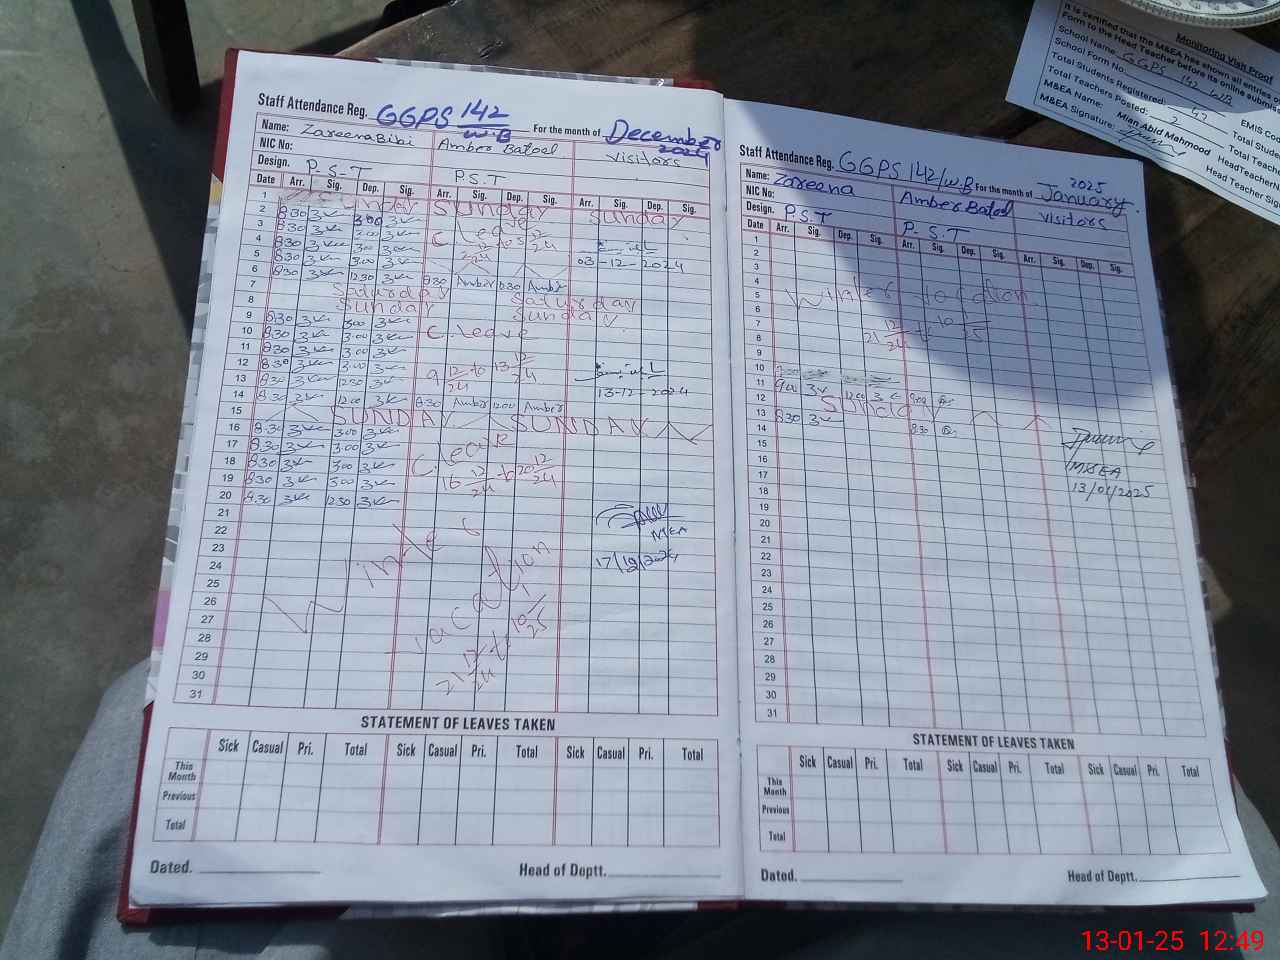 Staff Attendance Reg. GGPS 142 W.B For the month of December 2024
Name: Zareena Bibi Amber Batool visitors
NIC No:
Design. P.S.T P.S.T
Date Arr. Sig. Dep. Sig. Arr. Sig. Dep. Sig. Arr. Sig. Dep. Sig.
1 Sunday Sunday Sunday
2 8.30 3.00
3 8.30 3.00 C. leave
4 8.30 3.00
5 8.30 3.00 03-12-2024
6 8.30 12.30 8.30 Amber 12.30 Amber
7 Saturday Saturday
8 Sunday Sunday
9 8.30 3.00
10 8.30 3.00 C. leave
11 8.30 3.00
12 8.30 3.00 9 12/24 to 13 12/24
13 8.30 12.30 13-12-2024
14 8.30 12.00 8.30 Amber 12.00 Amber
15 SUNDAY SUNDAY
16 8.30 3.00
17 8.30 3.00 C. leave
18 8.30 3.00 16 12/24 to 20 12/24
19 8.30 3.00
20 8.30 12.30
21
22 MEA
23
24 17/12/2024
25 Winter
26 vacation
27 21 12/24 to 10 1/25
28
29
30
31
STATEMENT OF LEAVES TAKEN
Sick Casual Pri. Total Sick Casual Pri. Total Sick Casual Pri. Total
This Month
Previous
Total
Dated. Head of Deptt.
Staff Attendance Reg. GGPS 142/W.B For the month of January 2025
Name: Zareena Amber Batool visitors
NIC No:
Design. P.S.T P.S.T
Date Arr. Sig. Dep. Sig. Arr. Sig. Dep. Sig. Arr. Sig. Dep. Sig.
1
2
3
4
5 Winter
6
7 21 12/24 to 10 1/25
8
9
10
11 9.00 12.00 9.00
12 Sunday
13 8.30 8.30
14
15
16 MEA
17 13/01/2025
18
19
20
21
22
23
24
25
26
27
28
29
30
31
STATEMENT OF LEAVES TAKEN
Sick Casual Pri. Total Sick Casual Pri. Total Sick Casual Pri. Total
This Month
Previous
Total
Dated. Head of Deptt.
Monitoring Visit Proof
It is certified that the M&EA has shown all entries of
Form to the Head Teacher before its online submiss
School Name: GGPS 142 WB
School Form No. EMIS Co
Total Students Registered: 47 Total Stude
Total Teachers Posted: 2 Total Teache
M&EA Name: Mian Abid Mahmood HeadTeacher
M&EA Signature: Head Teacher Sig
13-01-25 12:49